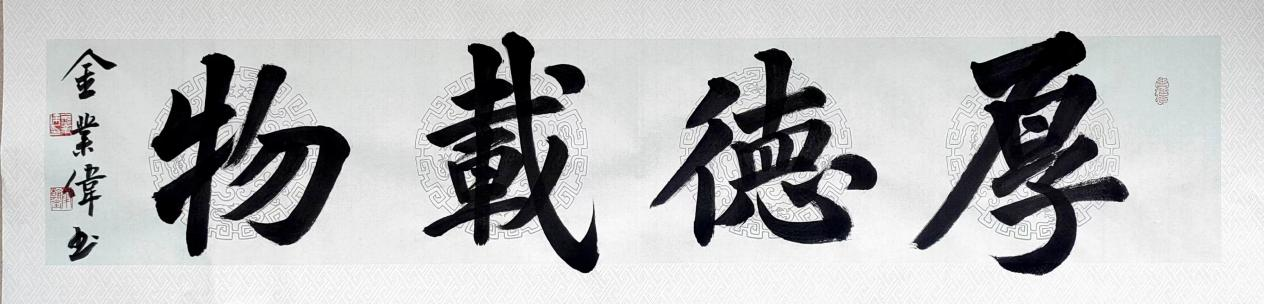 厚德載物
金業偉书